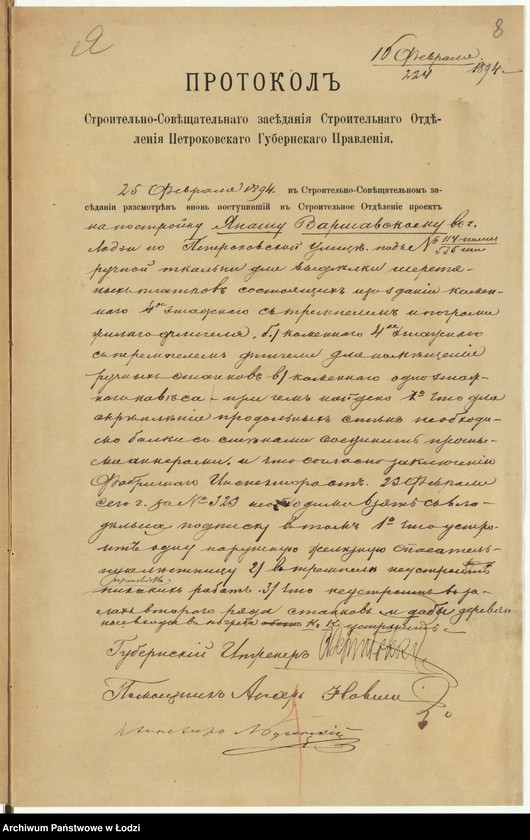 Я
8
10 Февраля 1894
224
ПРОТОКОЛЪ
Строительно-Совѣщательнаго засѣданія Строительнаго Отдѣ-
ленія Петроковскаго Губернскаго Правленія.
25 Февраля 1894. въ Строительно-Совѣщательномъ за-
сѣданіи разсмотрѣнъ вновь поступившій въ Строительное Отдѣленіе проектъ
на постройку Янашу Варшавскому въ г.
Лодзи по Петроковской улицѣ подъ №
ручной ткальни для выдѣлки шерстя-
ныхъ платковъ состоящихъ изъ зданія камен-
наго 4хъ этажнаго съ тремпелемъ и погребами
жилаго флигеля, б.) каменнаго 4хъ этажнаго
съ тремпелемъ флигеля для помѣщенія
ручныхъ станковъ в) каменнаго одноэтаж-
наго навѣса - при чемъ найдено 1е что для
скрѣпленія продольныхъ стѣнъ необходи-
мо балки со стѣнами соединить прочны-
ми анкерами, и что согласно заключенію
Фабричнаго Инспектора отъ 23 Февраля
сего г. за № 323 необходимо взять съ вла-
дѣльца подписку въ томъ 1е что устро-
итъ одну наружную желѣзную спасатель-
ную лѣстницу 2) въ тремпеляхъ не устроитъ
никакихъ работъ 3) что не устроитъ въ за-
лахъ второго ряда станковъ и дабы деревян-
устроить
Губернскій Инженеръ
Помощникъ